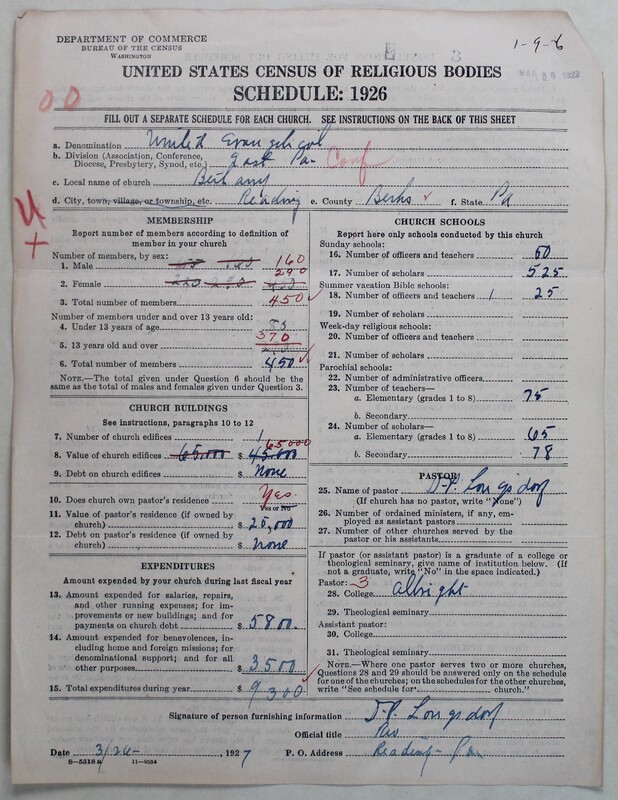 DEPARTMENT OF COMMERCE
BUREAU OF THE CENSUS
WASHINGTON
3
1-9-6
UNITED STATES CENSUS OF RELIGIOUS BODIES
SCHEDULE: 1926
00
FILL OUT A SEPARATE SCHEDULE FOR EACH CHURCH. SEE INSTRUCTIONS ON THE BACK OF THIS SHEET
a. Denomination United Evangelical
b. Division (Association, Conference, Diocese, Presbytery, Synod, etc.) East Pa- Conf
c. Local name of church Bethany
d. City, town, village, or township, etc. Reading e. County Berks f. State Pa
U
+
MEMBERSHIP
Report number of members according to definition of member in your church
Number of members, by sex:
1. Male 160
2. Female 290
3. Total number of members 450
Number of members under and over 13 years old:
4. Under 13 years of age 80
5. 13 years old and over 370
6. Total number of members 450
NOTE.—The total given under Question 6 should be the same as the total of males and females given under Question 3.
CHURCH BUILDINGS
See instructions, paragraphs 10 to 12
7. Number of church edifices 1
8. Value of church edifices 65,000 $ 45,000 65000
9. Debt on church edifices $ None
10. Does church own pastor's residence Yes
Yes or No
11. Value of pastor's residence (if owned by church) $ 20,000
12. Debt on pastor's residence (if owned by church) $ None
EXPENDITURES
Amount expended by your church during last fiscal year
13. Amount expended for salaries, repairs, and other running expenses; for improvements or new buildings; and for payments on church debt $ 5800.
14. Amount expended for benevolences, including home and foreign missions; for denominational support; and for all other purposes $ 3500
15. Total expenditures during year $ 9300
CHURCH SCHOOLS
Report here only schools conducted by this church
Sunday schools:
16. Number of officers and teachers 60
17. Number of scholars 525
Summer vacation Bible schools:
18. Number of officers and teachers 1 25
19. Number of scholars
Week-day religious schools:
20. Number of officers and teachers
21. Number of scholars
Parochial schools:
22. Number of administrative officers
23. Number of teachers—
a. Elementary (grades 1 to 8) 75
b. Secondary
24. Number of scholars—
a. Elementary (grades 1 to 8) 65
b. Secondary 78
PASTOR
25. Name of pastor J. P. Longsdorf
(If church has no pastor, write "None")
26. Number of ordained ministers, if any, employed as assistant pastors
27. Number of other churches served by the pastor or his assistants
If pastor (or assistant pastor) is a graduate of a college or theological seminary, give name of institution below. (If not a graduate, write "No" in the space indicated.)
Pastor: 3
28. College Albright
29. Theological seminary
Assistant pastor:
30. College
31. Theological seminary
NOTE.—Where one pastor serves two or more churches, Questions 28 and 29 should be answered only on the schedule for one of the churches; on the schedules for the other churches, write "See schedule for church."
Signature of person furnishing information J. P. Longsdorf
Official title Rev
Date 3/26-, 1927 P. O. Address Reading - Pa
8-5518a 11-9054